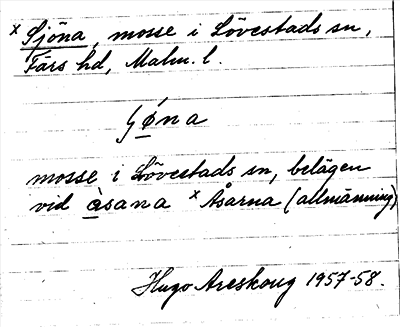 x Sjöna, mosse i Lövestads sn,
Färs hd, Malm. l.
ʃøna
mosse i Lövestads sn, belägen
vid àsana x Åsarna (allmänning)
Hugo Areskoug 1957-58.